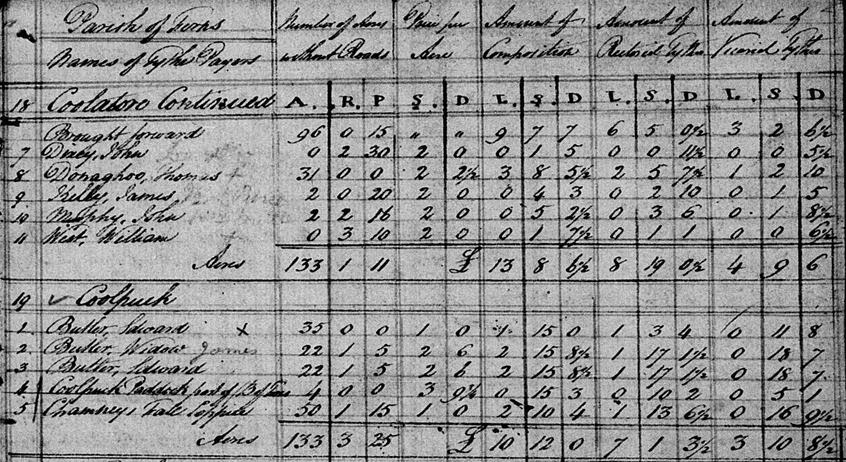 Parish of Ferns Number of Acres Price per Amount of Amount of Amount of
Names of Tythe Payers without Roads Acre Composition Rectorial Tythe Vicarial Tythe
18 Coolatore Continued A. R. P S. D L. S. D L. S. D L. S. D
Brought forward 96 0 15 " " 9 7 7 6 5 0½ 3 2 6½
7 Direy, John 0 2 30 2 0 0 1 5 0 0 11½ 0 0 5½
8 Donaghoo, Thomas + 31 0 0 2 2½ 3 8 5½ 2 5 7½ 1 2 10
9 Kelly, James 2 0 20 2 0 0 4 3 0 2 10 0 1 5
10 Murphy, John 2 2 16 2 0 0 5 2½ 0 3 6 0 1 8½
11 West, William + 0 3 10 2 0 0 1 7½ 0 1 1 0 0 6½
Acres 133 1 11 £ 13 8 6½ 8 19 0½ 4 9 6
19 ✓ Coolpuck
1 Butler, Edward x 35 0 0 1 0 1 15 0 1 3 4 0 11 8
2 Butler, Widow James 22 1 5 2 6 2 15 8½ 1 17 1½ 0 18 7
3 Butler, Edward 22 1 5 2 6 2 15 8½ 1 17 1½ 0 18 7
4 Coolpuck Paddock part of 4 0 0 3 9½ 0 15 3 0 10 2 0 5 1
5 Chamneys Coppice 50 1 15 1 0 2 10 4 1 13 6½ 0 16 9½
Acres 133 3 25 £ 10 12 0 7 1 3½ 3 10 8½